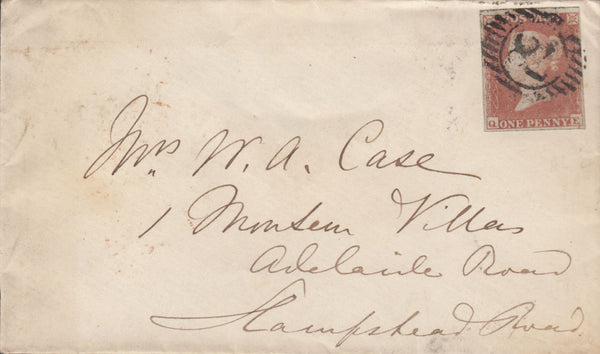 POSTAGE
ONE PENNY
Q E
Mrs. W. A. Case
1 Montem Villas
Adelaide Road
Hampstead Road.